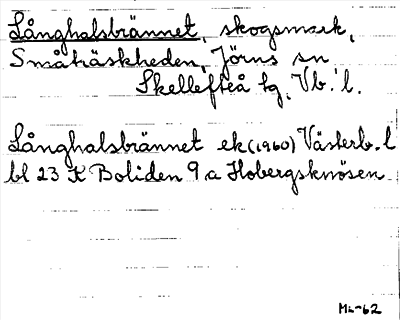 Långhalsbrännet, skogsmark,
Småträskheden, Jörns sn
Skellefteå tg, Vb. l.
Långhalsbrännet ek (1960) Västerb. l
bl 23 K Boliden 9 a Hobergsknösen
ML-62